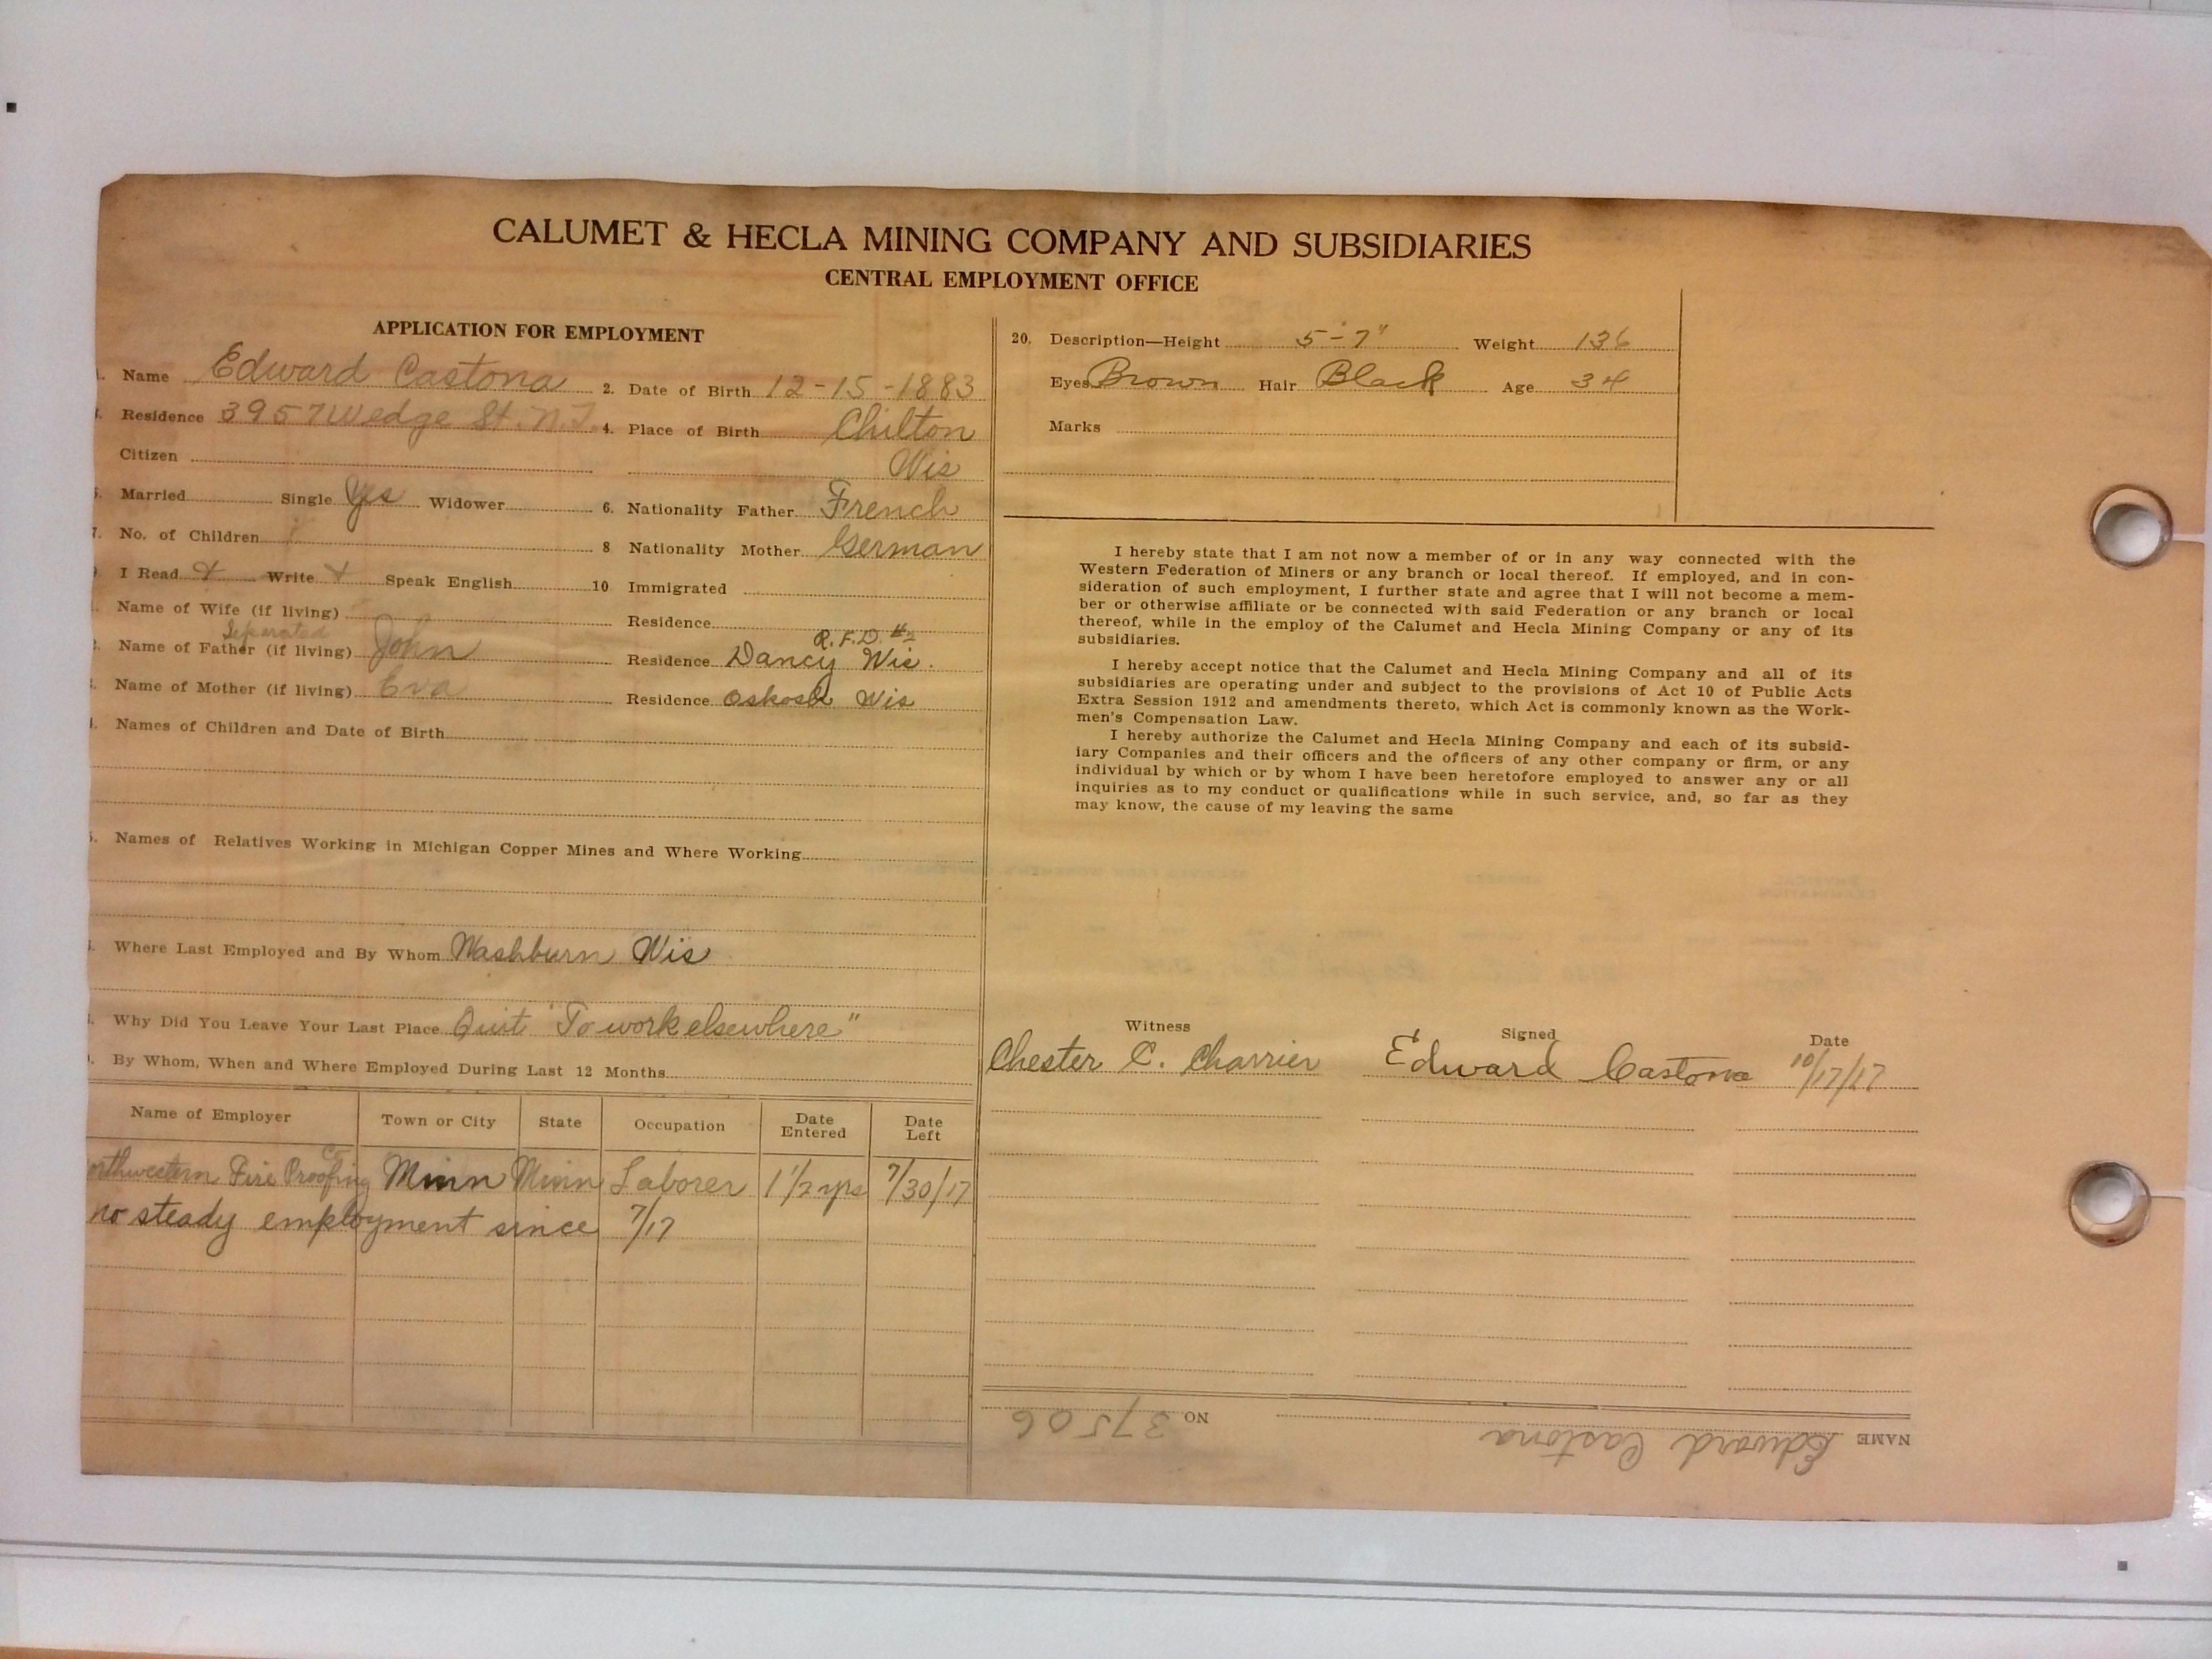 CALUMET & HECLA MINING COMPANY AND SUBSIDIARIES
CENTRAL EMPLOYMENT OFFICE
APPLICATION FOR EMPLOYMENT
Name Edward Castona 2. Date of Birth 12-15-1883
Residence 3957 Wedge St. N.T. 4. Place of Birth Chilton
Citizen Wis
Married Single Yes Widower 6. Nationality Father French
7. No. of Children 8 Nationality Mother German
I Read x Write x Speak English 10 Immigrated
Name of Wife (if living) Residence
Separated R.F.D. #2
Name of Father (if living) John Residence Dancy Wis.
Name of Mother (if living) Eva Residence Oskosh Wis
Names of Children and Date of Birth
Names of Relatives Working in Michigan Copper Mines and Where Working
Where Last Employed and By Whom Washburn Wis
Why Did You Leave Your Last Place Quit "To work elsewhere"
By Whom, When and Where Employed During Last 12 Months
Name of Employer Town or City State Occupation Date Entered Date Left
orthwestern Fire Proofing Co Minn Minn Laborer 1 1/2 yrs 7/30/17
no steady employment since 7/17
20. Description—Height 5-7" Weight 136
Eyes Brown Hair Black Age 34
Marks
I hereby state that I am not now a member of or in any way connected with the
Western Federation of Miners or any branch or local thereof. If employed, and in con-
sideration of such employment, I further state and agree that I will not become a mem-
ber or otherwise affiliate or be connected with said Federation or any branch or local
thereof, while in the employ of the Calumet and Hecla Mining Company or any of its
subsidiaries.
I hereby accept notice that the Calumet and Hecla Mining Company and all of its
subsidiaries are operating under and subject to the provisions of Act 10 of Public Acts
Extra Session 1912 and amendments thereto, which Act is commonly known as the Work-
men's Compensation Law.
I hereby authorize the Calumet and Hecla Mining Company and each of its subsid-
iary Companies and their officers and the officers of any other company or firm, or any
individual by which or by whom I have been heretofore employed to answer any or all
inquiries as to my conduct or qualifications while in such service, and, so far as they
may know, the cause of my leaving the same
Witness Signed Date
Chester C. Charrier Edward Castona 10/17/17
NAME Edward Castona NO 37506